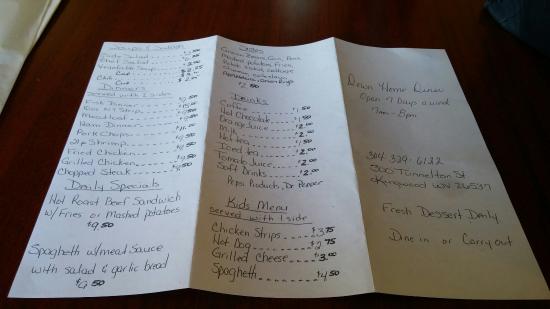 Soups & Salads
Side Salad
Chef Salad
Vegetable Soup
Cup
Chili
Cup
Dinners
Served with 2 sides
Fish Dinner
Meatloaf
Ham Dinner
Pork Chops
21 p Shrimp
Fried Chicken
Grilled Chicken
Chopped Steak
Daily Specials
Hot Roast Beef Sandwich
w/Fries or Mashed potatoes
$9.50
Spaghetti w/meat Sauce
with salad & garlic bread
$9.50
Sides
Green Beans, Corn,
Mashed potatoes, Fries,
Potato salad, Cottage
Cheese, coleslaw,
Onion Rings
$2.50
Drinks
Coffee $1.50
Hot Chocolate $1.50
Orange Juice $2.00
Milk $2.00
Hot tea $1.50
Iced tea $2.00
Tomato Juice $2.00
Soft Drinks $2.00
Pepsi Products, Dr Pepper
Kids Menu
Served with 1 side
Chicken Strips $3.75
Hot Dog $2.75
Grilled Cheese $3.00
Spaghetti $4.50
Down Home Diner
Open 7 Days a week
7am-8pm
304-329-6122
300 Tunnelton St
Kingwood WV 26537
Fresh Dessert Daily
Dine in or Carry out